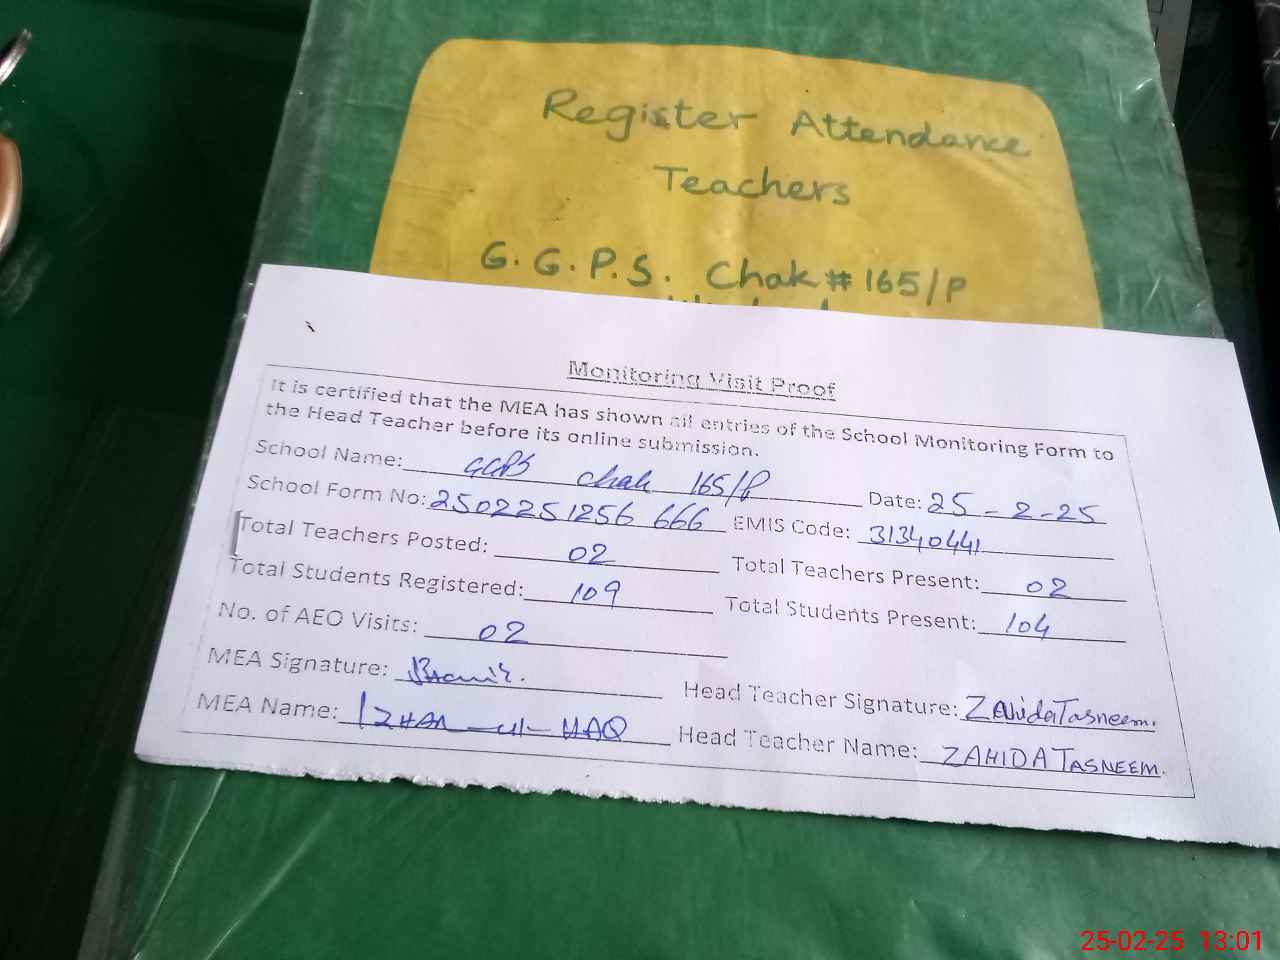 Register Attendance
Teachers
G.G.P.S. Chak # 165/P
Monitoring Visit Proof
It is certified that the MEA has shown all entries of the School Monitoring Form to
the Head Teacher before its online submission.
School Name: GGPS Chak 165/P Date: 25-2-25
School Form No: 2502251256 666 EMIS Code: 31340441
Total Teachers Posted: 02 Total Teachers Present: 02
Total Students Registered: 109 Total Students Present: 104
No. of AEO Visits: 02
MEA Signature: Head Teacher Signature: ZAhidaTasneem.
MEA Name: IZHAR-ul-HAQ Head Teacher Name: ZAHIDA TASNEEM.
25-02-25 13:01